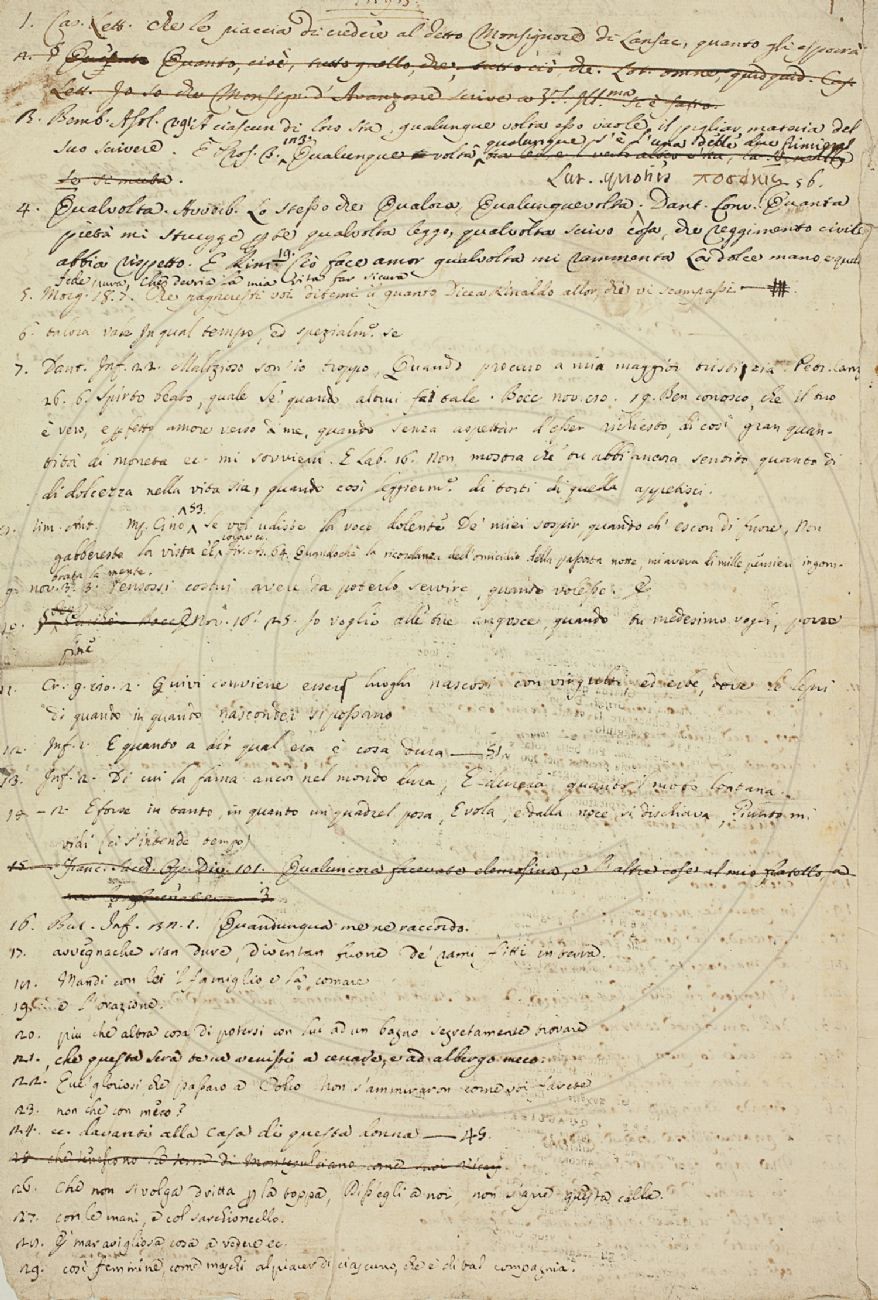 1. Cas. Lett. che le piaccia di credere al detto Monsignore di Lansac, quanto gli esporrà
Quanto, cioè, tutto quello, che, tutto ciò, che. Lat. omne, quidquid. Cas.
Lett. Io so che Monsig. d'Avanzone scrive a V. S. Ill.ma
3. Bemb. Asol. A ciascun di loro sia, qualunque volta esso vuole il pigliar materia del
suo scrivere. Qualunque volta
Lat. quotiens ποσάκις 56.
4. Qualvolta. Avverb. Lo stesso che Qualora, Qualunquevolta. Dant. Conv. Quanta
pietà mi stringe per te, qualvolta leggo, qualvolta scrivo cosa, che reggimento civile
abbia rispetto. E Rim. 19. Ciò face amor qualvolta mi rammenta La dolce mano e quella
fede pura, Che devria la mia vita far sicura
5. Morg. 18. 7. Che pagheresti voi ditemi il quanto Dicea Rinaldo allor, che vi scampassi
6. talora vale In qual tempo, ed spezialm.e se
7. Dant. Inf. 22. Malizioso son io troppo, Quando procuro a mia maggior tristizia. Petr. canz.
26. 6. Spirto beato, quale Se' quando altrui fai tale. Bocc. nov. 19. Ben conosco, che il tuo
è vero, e perfetto amore verso di me, quando senza aspettar d'esser richiesto, di così gran quan-
tità di moneta ec. mi sovvieni. E Lab. 16. Non mostra che tu abbi ancora sentito quanto di
di dolcezza nella vita sia, quando così leggierm.e di torti di quella appetisci.
Rim. Ant. M. Cino 53. Se voi udiste la voce dolente De' miei sospir quando ch'escon di fuore, Non
gabbereste la vista e'l Quandochè la ricordanza dell'omicidio della passata notte, mi aveva di mille pensieri ingom-
brata la mente.
9. nov. 3. 3. Pensossi costui avere da poterlo servire, quando volesse.
Nov. 16. 25. Io voglio alle tue angosce, quando tu medesimo vogli, porre
fine
11. Cr. 9. Quivi conviene essere luoghi nascosi con virgulti, ed erbe, dove le lepri
di quando in quando nasconder si possano
12. Inf. 1. E quanto a dir qual era è cosa dura — 51
13. Inf. 2. Di cui la fama ancor nel mondo dura, E durerà quanto il moto lontana.
14. — 2. E forse in tanto, in quanto un quadrel posa, E vola, e dalla noce si dischiava, Giunto mi
vidi (ci s'intende tempo)
15. Franc. Sacch. Op. Div. 101. Qualuncora facevate elemosina, e l'altre cose al mio fratello, a
16. But. Inf. 13. 1. Quandunqua me ne raccordo.
17. avvegnachè sian dure, diventan fuone de' rami fitti in terra.
Mandi con lei 'l famiglio e la comare
19. e l'orazione.
20. più che altra cosa di potersi con lui ad un bagno segretamente trovare
21. che questa sera te ne venissi a cenare, e ad albergo meco.
22. E que' gloriosi che passaro a Colco Non s'ammiraron come voi farete
23. non che con meco?
24. ec. davanti alla casa di questa donna — 49.
26. Che non si volga dritta per la toppa, Diss'egli a noi, non s'apre questa calla.
27. con le mani, e col sarchioncello.
È maravigliosa cosa a vedere ec.
29. così femmine, come maschi al piacer di ciascuno, che è di tal compagnia.